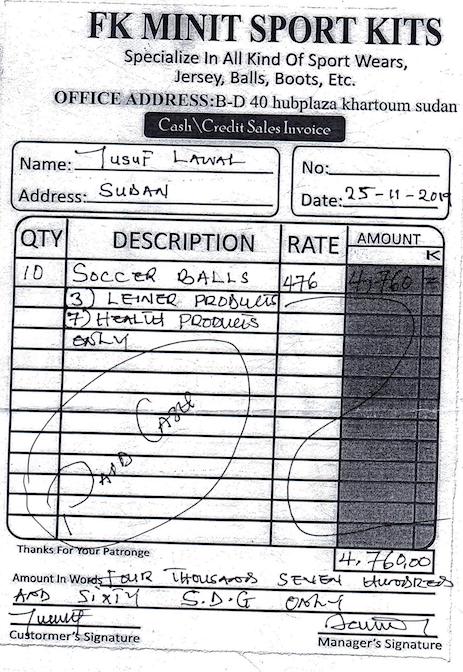 FK MINIT SPORT KITS
Specialize In All Kind Of Sport Wears,
Jersey, Balls, Boots, Etc.
OFFICE ADDRESS:B-D 40 hubplaza khartoum sudan
Cash\Credit Sales Invoice
Name: YUSUF LAWAL
Address: SUDAN
No:
Date: 25-11-2019
QTY DESCRIPTION RATE AMOUNT
K
10 SOCCER BALLS 476 4,760 =
3) LEINER PRODUCTS
7) HEALTH PRODUCTS
ONLY
PAID CASH
Thanks For Your Patronge
4,760,00
Amount In Words FOUR THOUSAND SEVEN HUNDRED
AND SIXTY S.D.G ONLY
Custormer's Signature
Manager's Signature